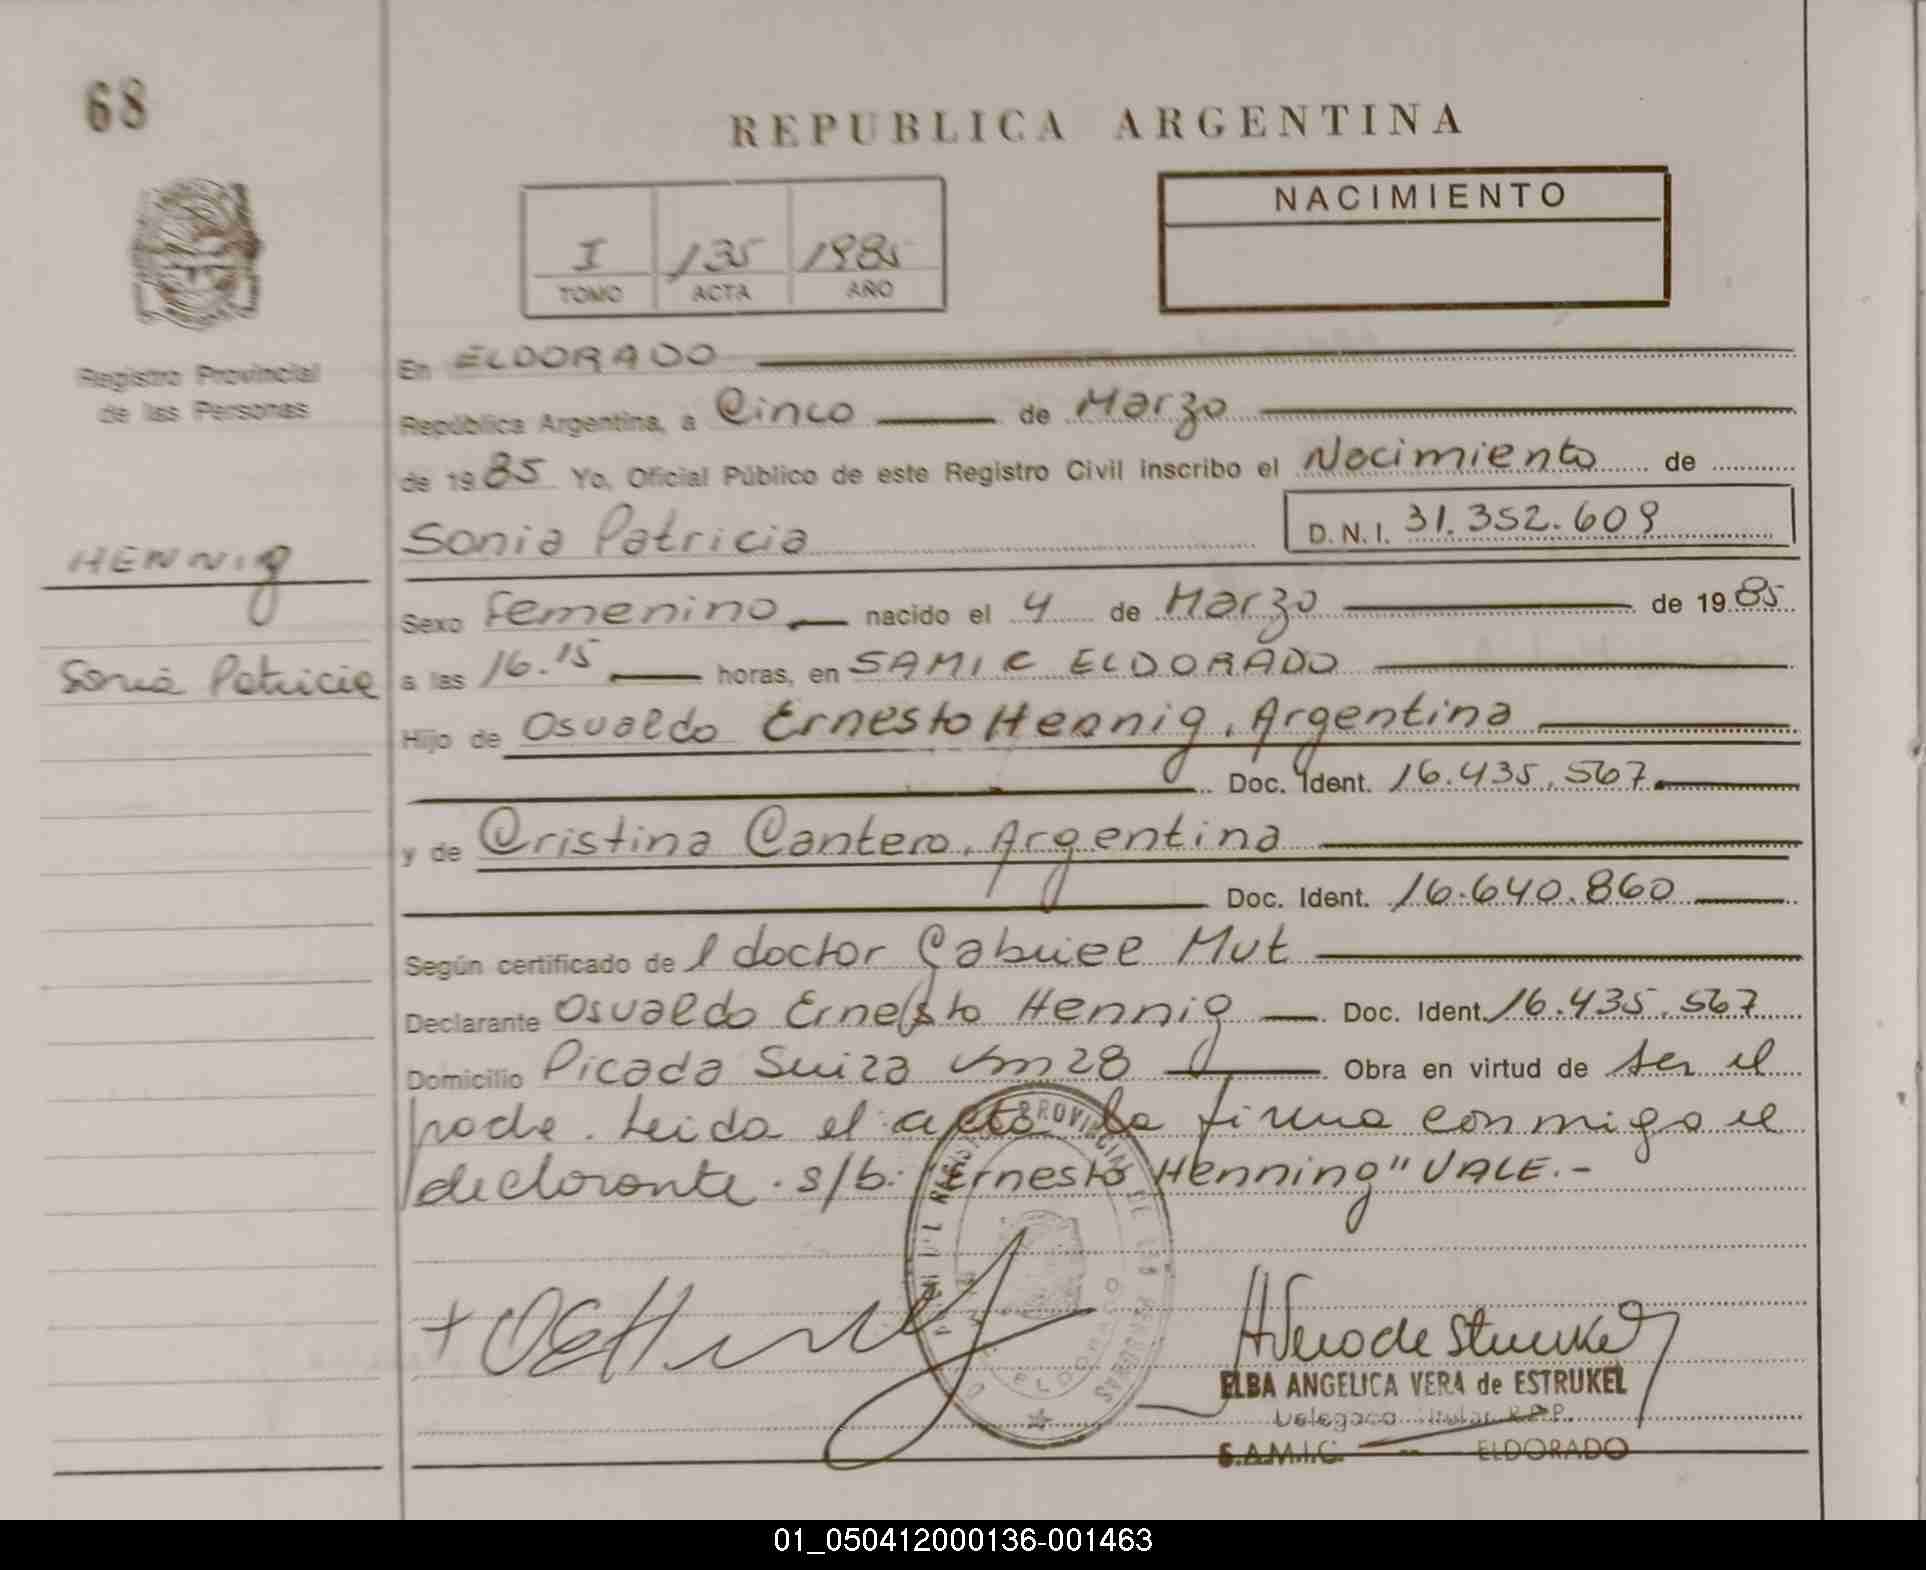 68
REPUBLICA ARGENTINA
NACIMIENTO
I 135 1985
TOMO ACTA AÑO
Registro Provincial
de las Personas
En ELDORADO
República Argentina, a Cinco de Marzo
de 1985 Yo, Oficial Público de este Registro Civil inscribo el Nacimiento de
Sonia Patricia D.N.I. 31.352.609
HENNIg
Sexo femenino nacido el 4 de Marzo de 1985
Sonia Patricia
a las 16.15 horas, en SAMIC ELDORADO
Hijo de Osvaldo Ernesto Hennig, Argentina
Doc. Ident. 16.435.567
y de Cristina Cantero, Argentina
Doc. Ident. 16.640.860
Según certificado de l doctor Gabriel Mut
Declarante Osvaldo Ernesto Hennig Doc. Ident. 16.435.567
Domicilio Picada Suiza Km 28 Obra en virtud de ser el
padre. Leida el acta la firma conmigo el
declarante. s/b: "Ernesto Henning" VALE.-
REGISTRO PROVINCIAL DE LAS PERSONAS
ELDORADO
ELBA ANGELICA VERA de ESTRUKEL
Delegada Titular R.P.P.
S.A.M.I.C. - ELDORADO
01_050412000136-001463